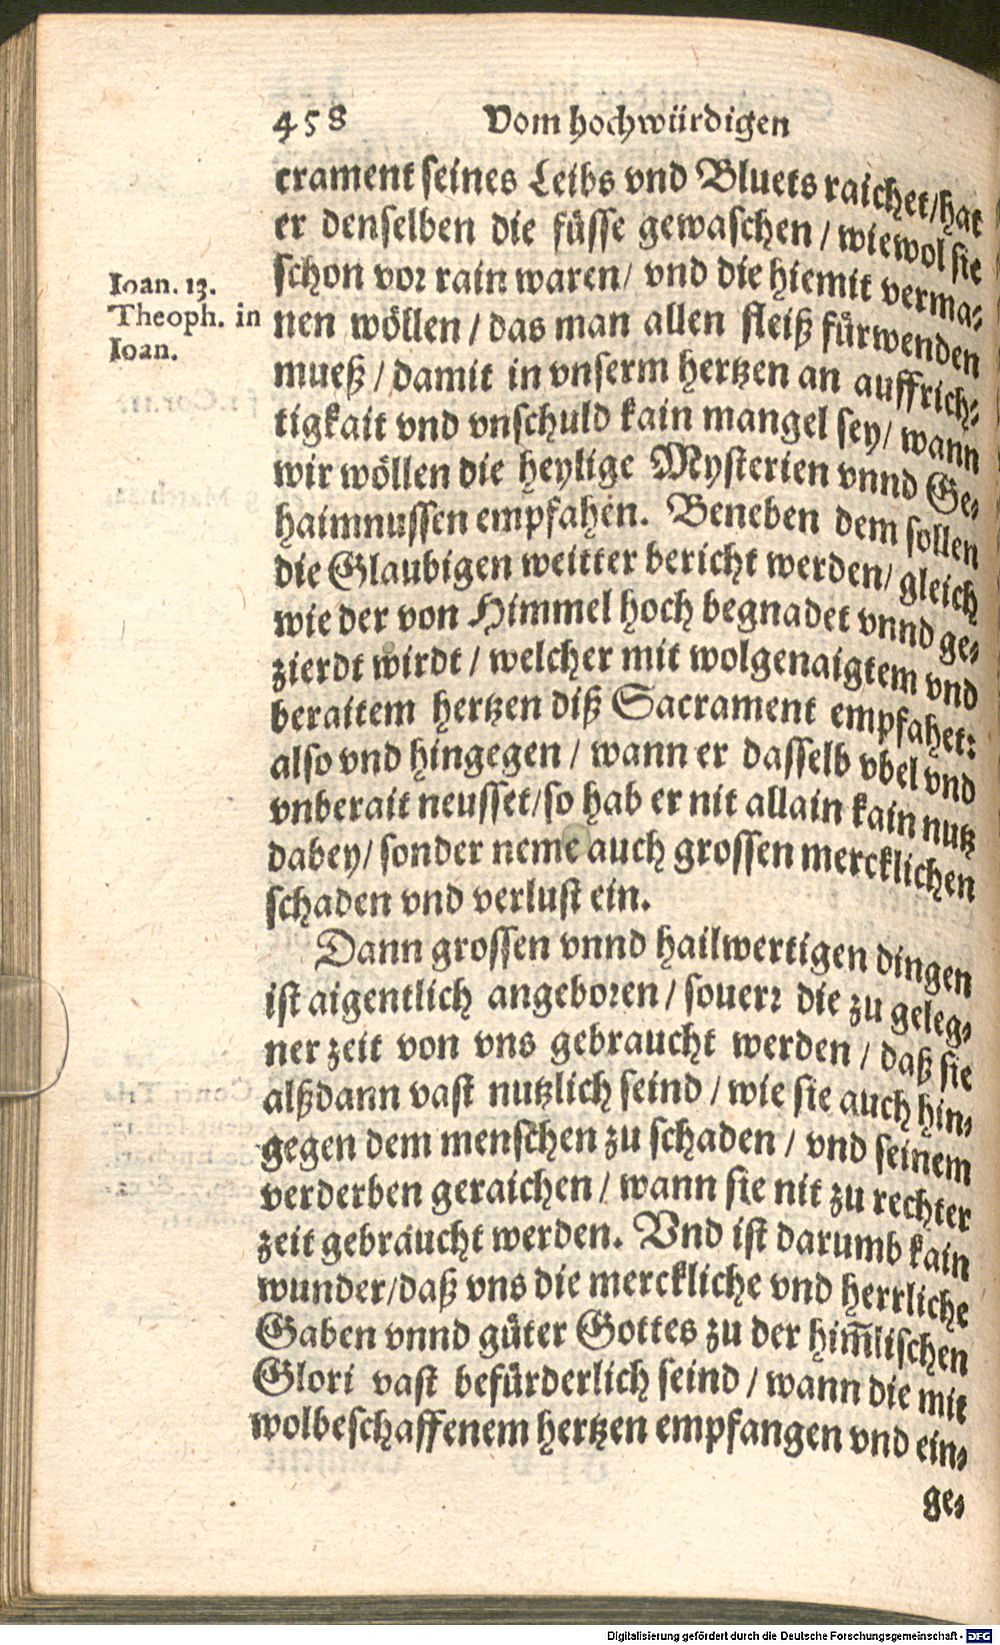 458 Vom hochwürdigen
crament seines Leibs vnd Bluets raichet/hat
er denselben die füsse gewaschen / wiewol sie
schon vor rain waren/ vnd die hiemit verma-
nen wöllen / das man allen fleiß fürwenden
mueß / damit in vnserm hertzen an auffrich-
tigkait vnd vnschuld kain mangel sey/ wann
wir wöllen die heylige Mysterien vnnd Ge-
haimnussen empfahen. Beneben dem sollen
die Glaubigen weitter bericht werden/ gleich
wie der von Himmel hoch begnadet vnnd ge-
zierdt wirdt / welcher mit wolgenaigtem vnd
beraitem hertzen diß Sacrament empfahet:
also vnd hingegen / wann er dasselb vbel vnd
vnberait neusset/so hab er nit allain kain nutz
dabey/ sonder neme auch grossen mercklichen
schaden vnd verlust ein.
Dann grossen vnnd hailwertigen dingen
ist aigentlich angeboren / souerr die zu geleg-
ner zeit von vns gebraucht werden / daß sie
alßdann vast nutzlich seind / wie sie auch hin-
gegen dem menschen zu schaden / vnd seinem
verderben geraichen / wann sie nit zu rechter
zeit gebraucht werden. Vnd ist darumb kain
wunder/daß vns die merckliche vnd herrliche
Gaben vnnd güter Gottes zu der him̃lischen
Glori vast befürderlich seind / wann die mit
wolbeschaffenem hertzen empfangen vnd ein-
ge-
Ioan. 13.
Theoph. in
Ioan.
Digitalisierung gefördert durch die Deutsche Forschungsgemeinschaft - DFG